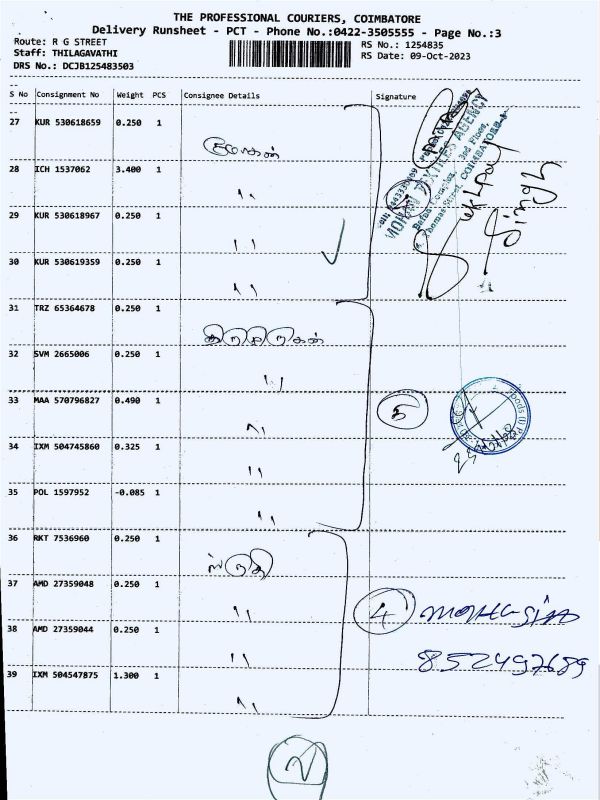 THE PROFESSIONAL COURIERS, COIMBATORE
Delivery Runsheet - PCT - Phone No.:0422-3505555 - Page No.:3
Route: R G STREET RS No.: 1254835
Staff: THILAGAVATHI RS Date: 09-Oct-2023
DRS No.: DCJB125483503
S No Consignment No Weight PCS Consignee Details Signature
27 KUR 530618659 0.250 1
28 ICH 1537062 3.400 1
"
29 KUR 530618967 0.250 1
"
30 KUR 530619359 0.250 1
"
31 TRZ 65364678 0.250 1
32 SVM 2665006 0.250 1
"
33 MAA 570796827 0.490 1
5
"
34 IXM 504745860 0.325 1
"
35 POL 1597952 -0.085 1
"
36 RKT 7536960 0.250 1
37 AMD 27359048 0.250 1
" 4
38 AMD 27359044 0.250 1
"
39 IXM 504547875 1.300 1
"
2